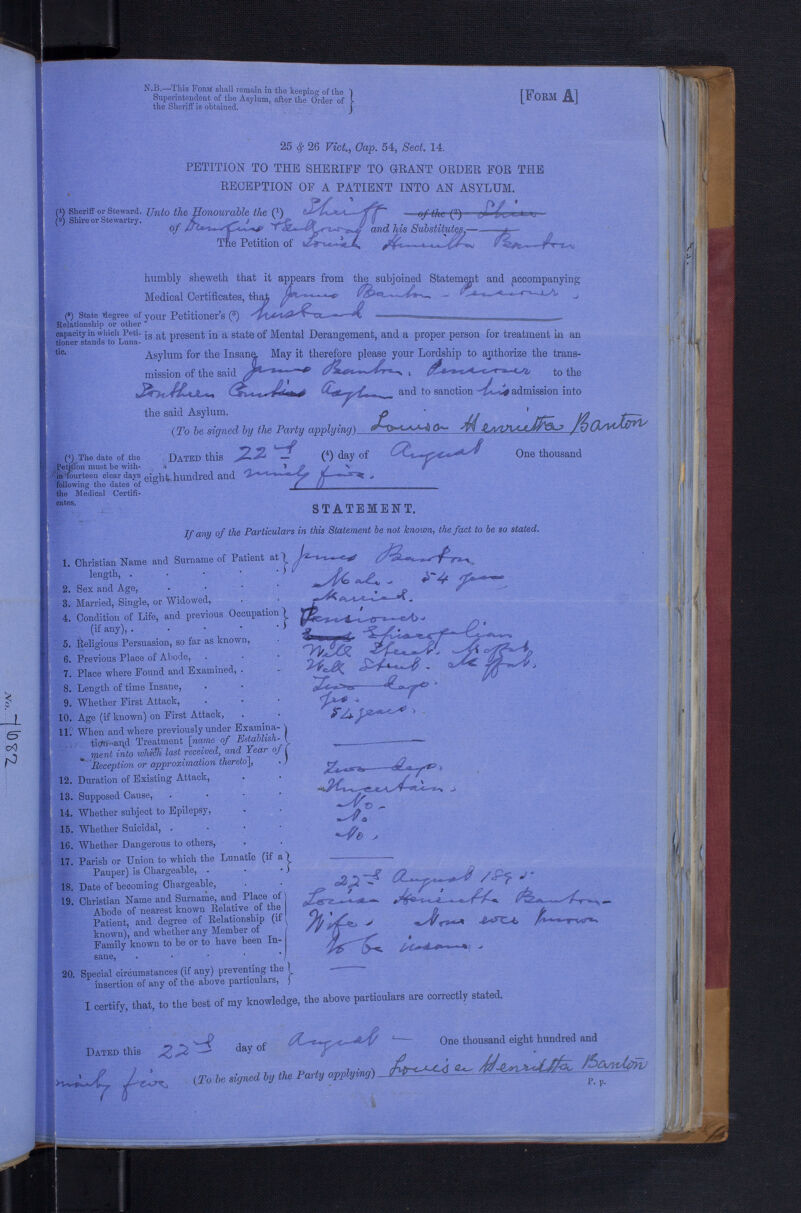 N.B.—This Form shall remain in the keeping of the
Superintendent of the Asylum, after the Order of
the Sheriff is obtained.
[Form A]
25 & 26 Vict., Cap. 54, Sect. 14.
PETITION TO THE SHERIFF TO GRANT ORDER FOR THE
RECEPTION OF A PATIENT INTO AN ASYLUM.
(¹) Sheriff or Steward.
(²) Shire or Stewartry.
Unto the Honourable the (¹) Sheriff of the (²) Shire
of Dumfries & Galloway and his Substitutes,—
The Petition of Louisa Henrietta Banton
humbly sheweth that it appears from the subjoined Statement and accompanying
Medical Certificates, that James Banton - Pensioner,
(³) State degree of
Relationship or other
capacity in which Peti-
tioner stands to Luna-
tic.
your Petitioner's (³) husband
is at present in a state of Mental Derangement, and a proper person for treatment in an
Asylum for the Insane. May it therefore please your Lordship to authorize the trans-
mission of the said James Banton, Pensioner to the
Southern Counties Asylum and to sanction his admission into
the said Asylum.
(To be signed by the Party applying) Louisa Henrietta Banton
(⁴) The date of the
Petition must be with-
in fourteen clear days
following the dates of
the Medical Certifi-
cates.
Dated this 22nd (⁴) day of August One thousand
eight hundred and ninety five.
STATEMENT.
If any of the Particulars in this Statement be not known, the fact to be so stated.
1. Christian Name and Surname of Patient at
length, . James Banton
2. Sex and Age, Male. 54 years
3. Married, Single, or Widowed, Married.
4. Condition of Life, and previous Occupation
(if any), . Pensioner.
5. Religious Persuasion, so far as known, Episcopalian
6. Previous Place of Abode, Well Street. Moffat
7. Place where Found and Examined, . Well Street. Moffat.
8. Length of time Insane, Two days.
9. Whether First Attack, Yes.
10. Age (if known) on First Attack, 54 years.
11. When and where previously under Examina-
tion and Treatment [name of Establish-
ment into which last received, and Year of
Reception or approximation thereto],
12. Duration of Existing Attack, Two days.
13. Supposed Cause, Uncertain.
14. Whether subject to Epilepsy, No.
15. Whether Suicidal, . No
16. Whether Dangerous to others, No.
17. Parish or Union to which the Lunatic (if a
Pauper) is Chargeable, .
18. Date of becoming Chargeable, 22nd August 1895.
19. Christian Name and Surname, and Place of
Abode of nearest known Relative of the
Patient, and degree of Relationship (if
known), and whether any Member of
Family known to be or to have been In-
sane,
Louisa Henrietta Banton -
Wife. None ever known
to be insane.
20. Special circumstances (if any) preventing the
insertion of any of the above particulars,
I certify, that, to the best of my knowledge, the above particulars are correctly stated.
Dated this 22nd day of August — One thousand eight hundred and
ninety five (To be signed by the Party applying) Louisa Henrietta Banton
P. p.
No. 7682